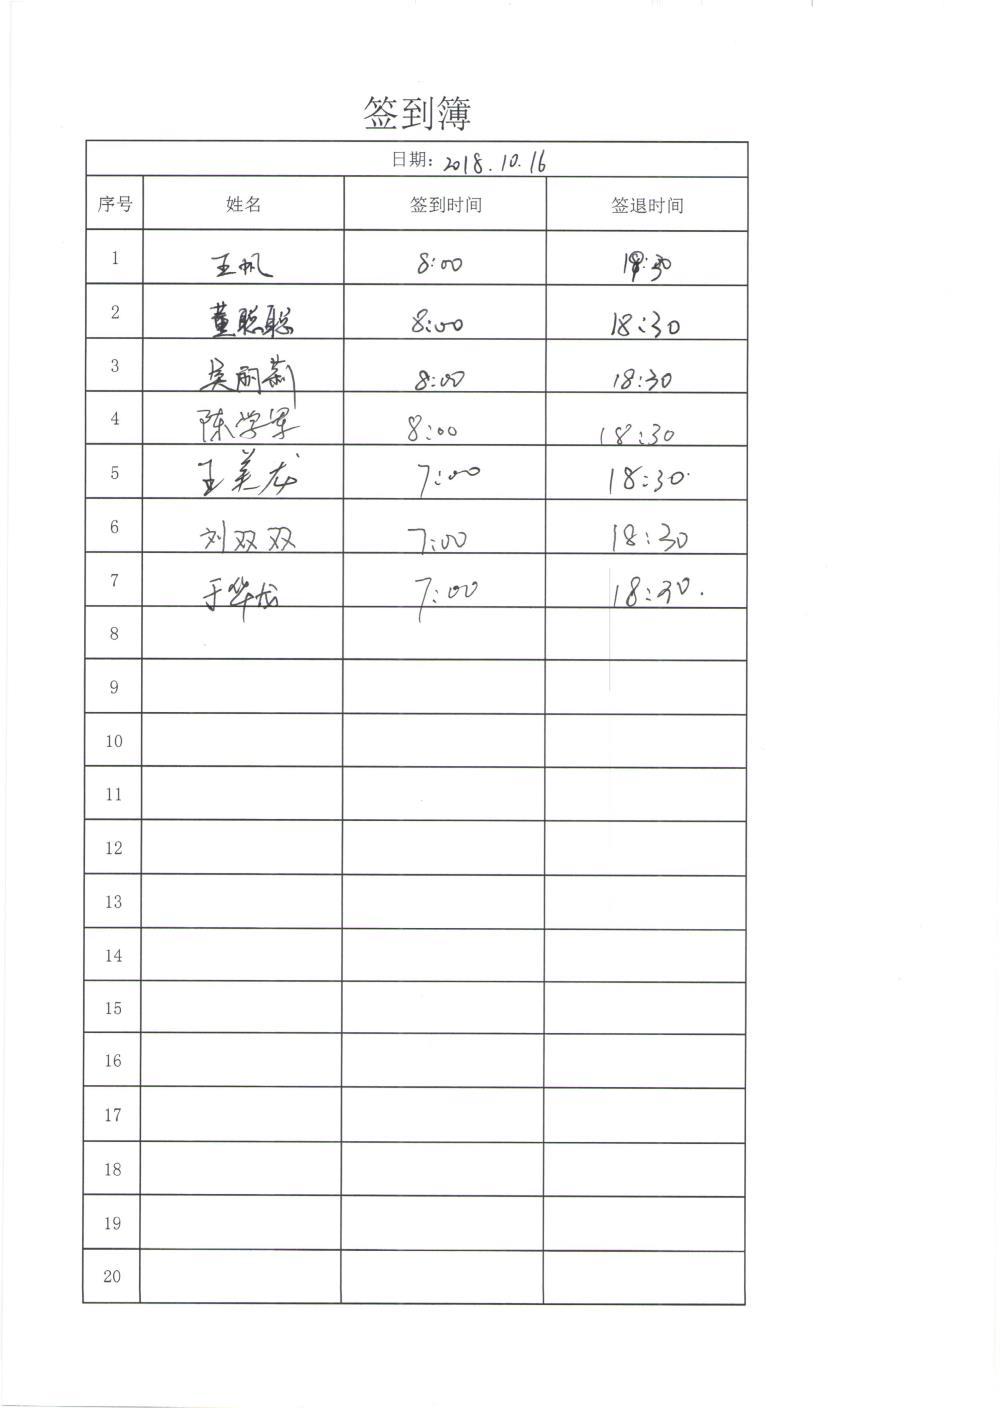 签到簿
日期: 2018.10.16
序号 姓名 签到时间 签退时间
1 王帆 8:00 :30
2 董聪聪 8:00 18:30
3 吴丽莉 8:00 18:30
4 陈学军 8:00 18:30
5 王美龙 7:00 18:30
6 刘双双 7:00 18:30
7 于华龙 7:00 18:30.
8
9
10
11
12
13
14
15
16
17
18
19
20